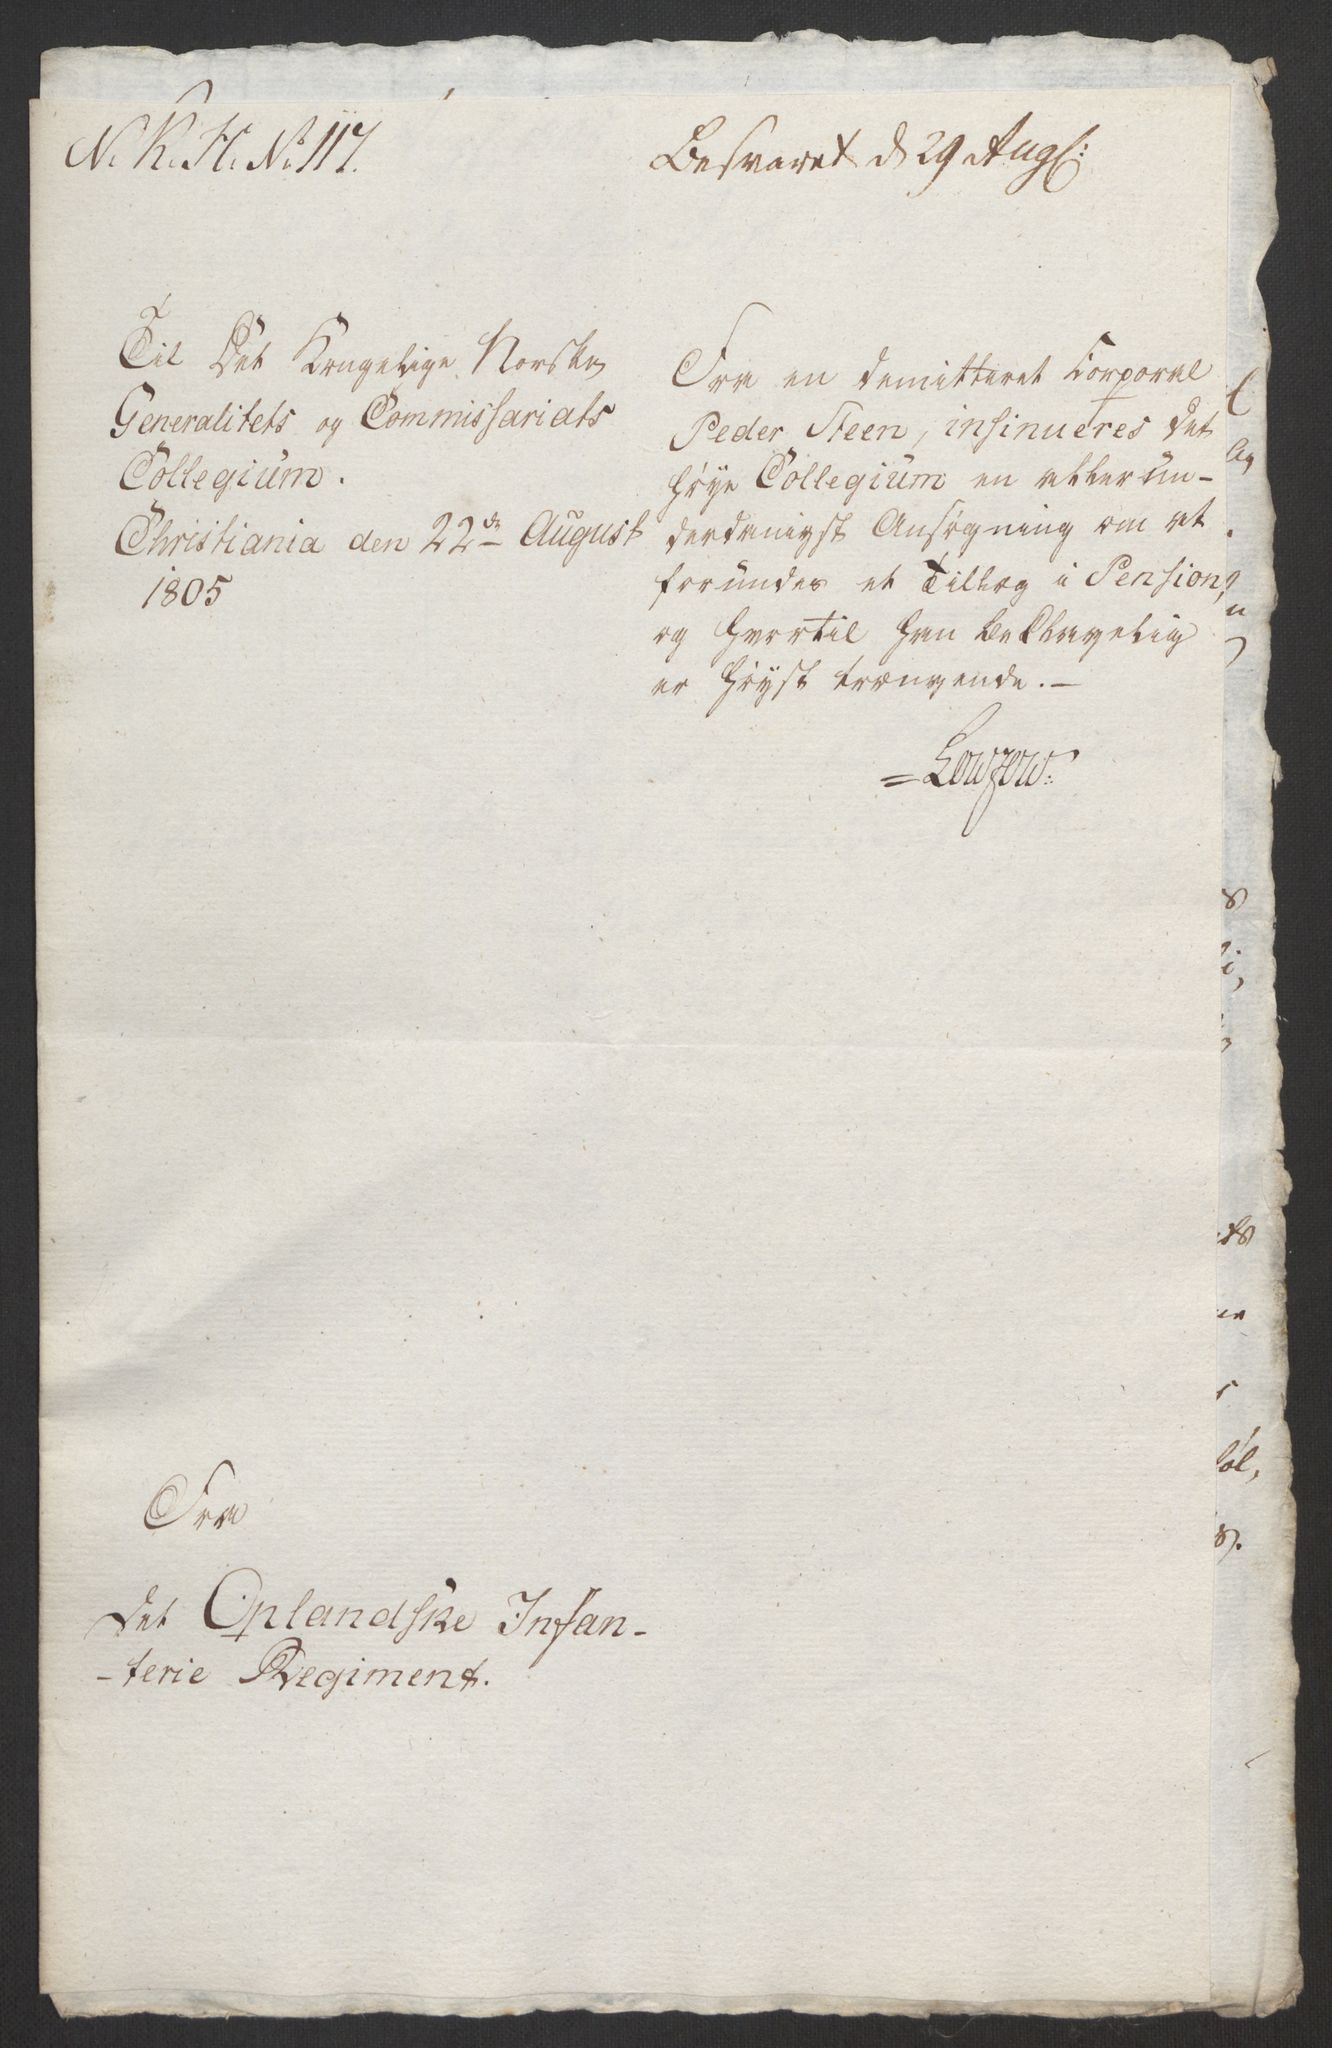 N. K. H. No 117.
Besvaret d 29 Aug:
Til Det Kongelige Norske
Generalitets og Commissariats
Collegium.
Christiania den 22de August
1805
Fra en demitteret Corporal
Peder Steen, insinueres det
høye Collegium en allerun-
derdanigst Ansøgning om at
forundes et Tillæg i Pension,
og hvortil han beklagelig
er høyst trængende. —
= Lowzow:
Fra
det Oplandske Infan-
-terie Regiment.